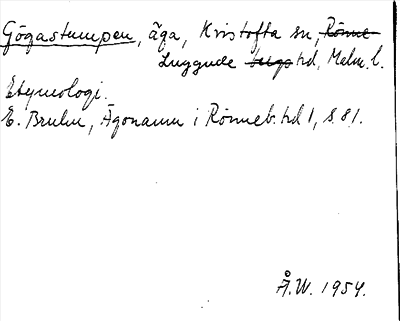 Gögastumpen, äga, Kristofta sn, Rönne-
Luggude bergs hd, Malm. l.
Etymologi.
E. Bruhn, Ägonamn i Rönneb. hd 1, s. 81.
Å.W. 1954.